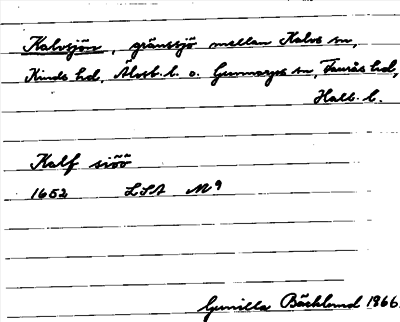 Kalvsjön, gränssjö mellan Kalvs sn,
Kinds hd, Älvsb. l. o. Gunnarps sn, Faurås hd,
Hall. l.
Kalf siöö
1652 LSA M9
Gunilla Bäcklund 1966.